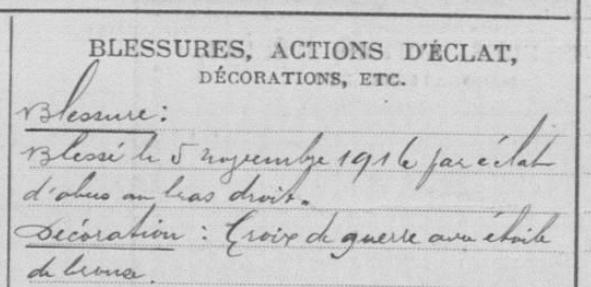 BLESSURES, ACTIONS D'ÉCLAT,
DÉCORATIONS, ETC.
Blessure :
Blessé le 5 novembre 1916 par éclat
d'obus au bras droit.
Décoration : Croix de guerre avec étoile
de bronze.